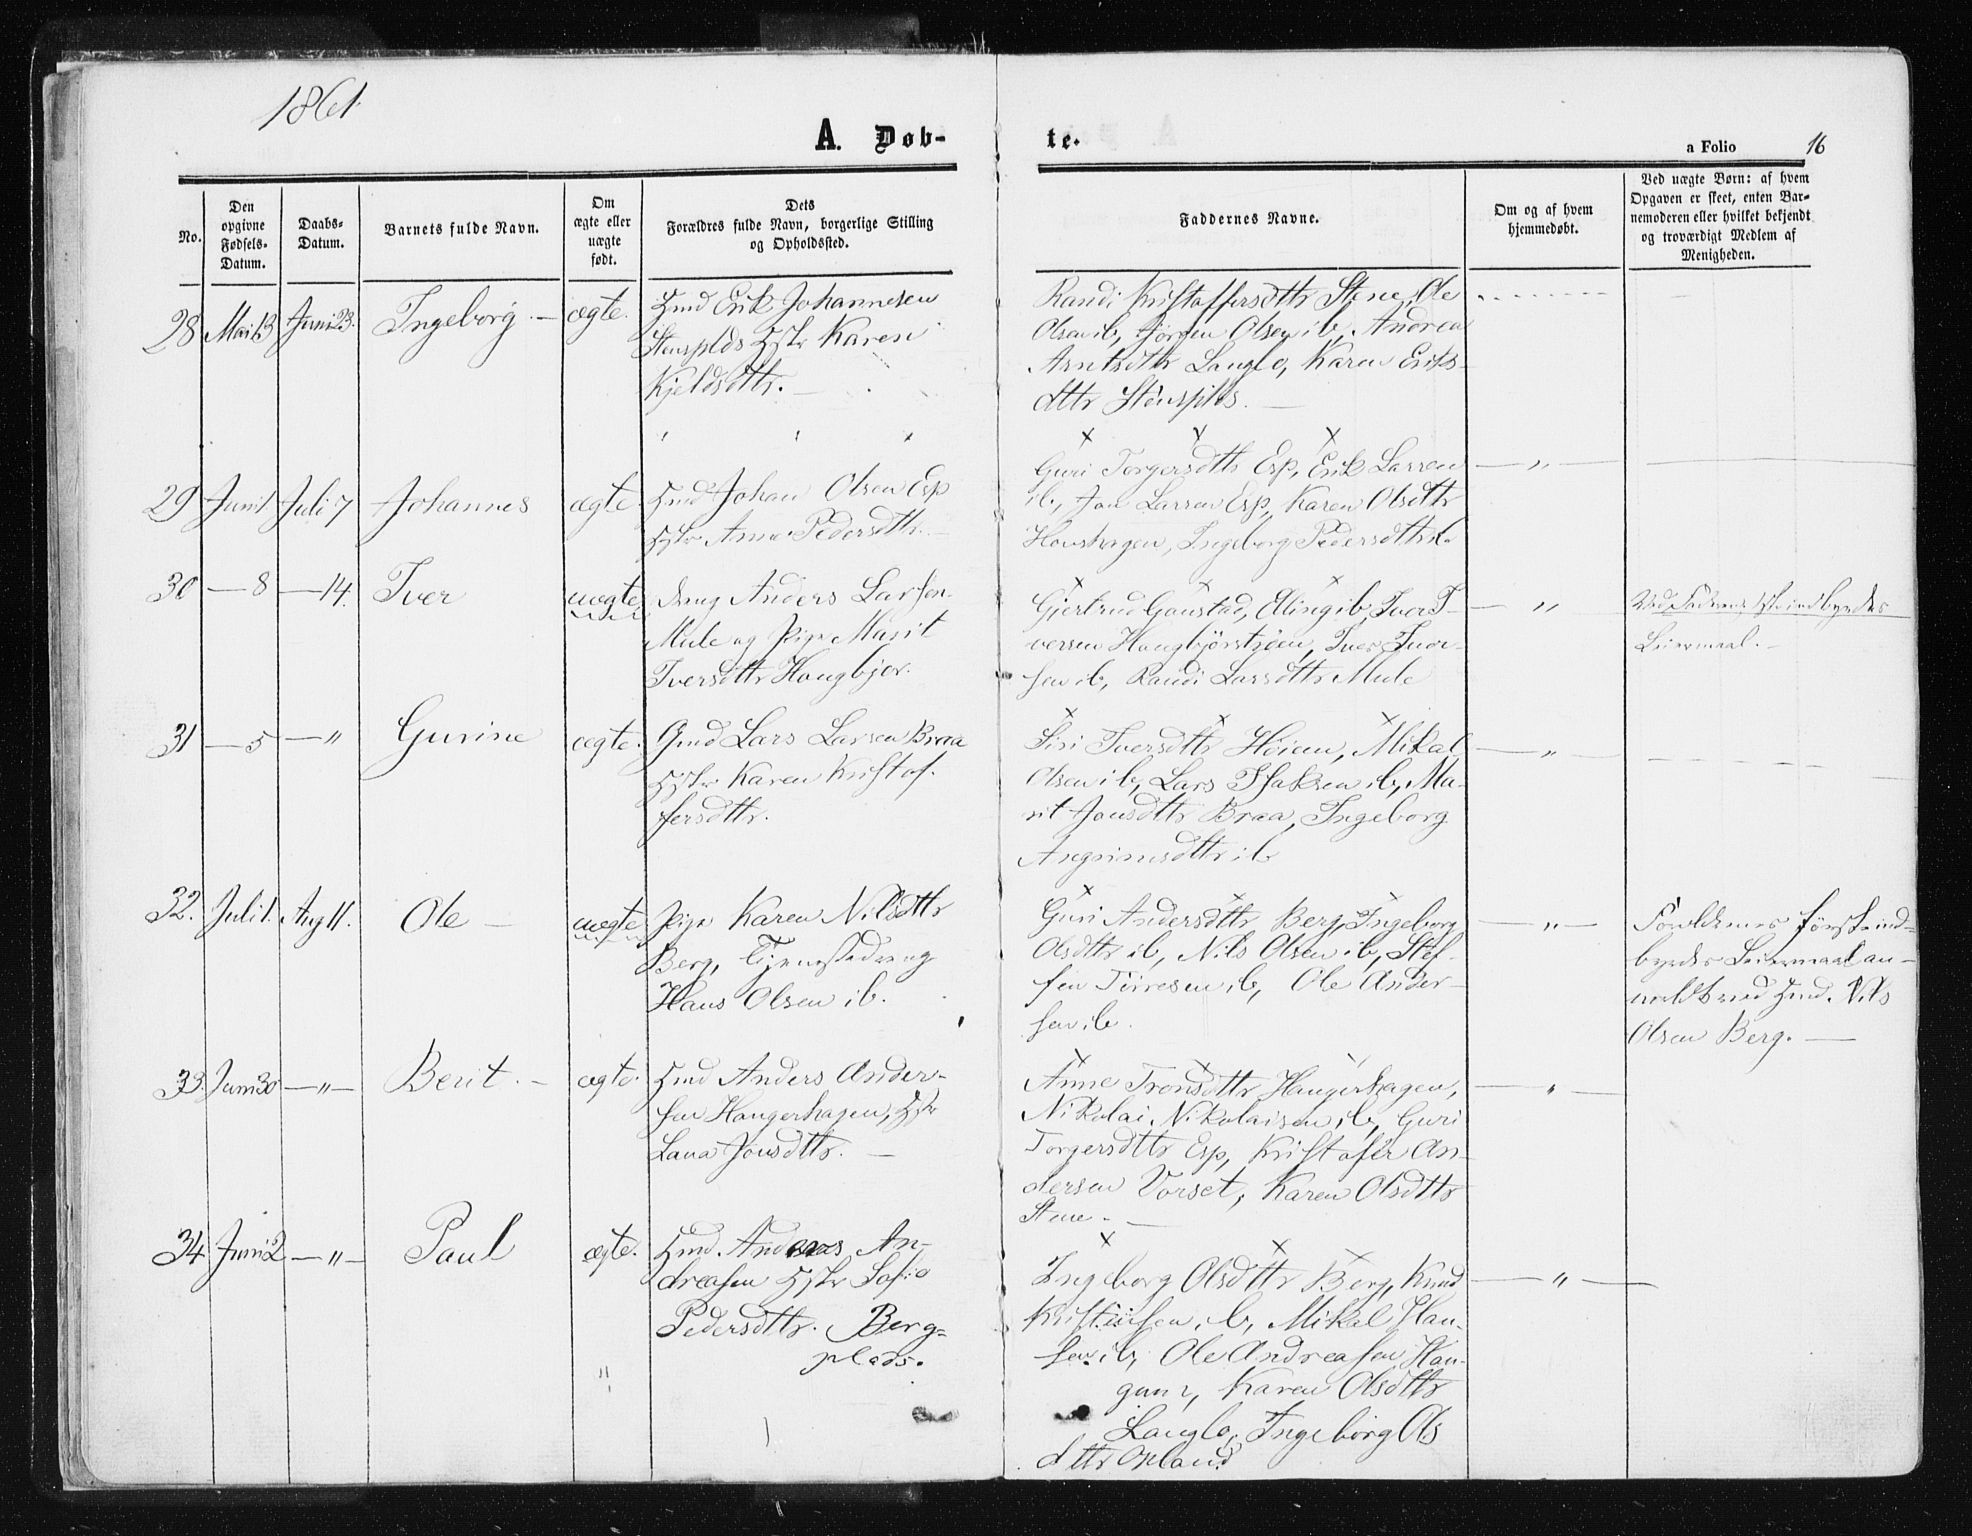 1861
A. Døb-
te.
a Folio 16
No.
Den opgivne Fødsels-Datum.
Daabs-Datum.
Barnets fulde Navn.
Om ægte eller uægte født.
Dets Forældres fulde Navn, borgerlige Stilling og Opholdssted.
Faddernes Navne.
Om og af hvem hjemmedøbt.
Ved uægte Børn: af hvem Opgaven er skeet, enten Barnemoderen eller hvilket bekjendt og troværdigt Medlem af Menigheden.
28 Mai 13 Juni 23. Ingeborg. — ægte.
Hmd Erik Johannesen
Stensplds Hstr Karen
Kjeldsdttr. —
Randi Kristaffersdttr Stene, Ole
Olsen ib, Jörgen Olsen ib, Andrea
Arntsdttr Langlo, Karen Eriks-
dttr Stensplds. —
29 Juni 1 Juli 7 Johannes ægte.
Hmd Johan Olsen Esp
Hstr Anne Pedersdttr. —
Guri Torgersdttr Esp, Erik Larsen
ib, Jon Larsen Esp, Karen Olsdttr
Hovshagen, Ingeborg Pedersdttr ib.
30 — 8 — 14. Iver uægte
Drug Anders Larsen
Mule og Pige Marit
Iversdttr Haugbjør.
Gjertrud Gaustad, Elling ib, Iver I-
versen Haugbjörstrøen, Iver Iver-
sen ib, Randi Larsdttr Mule
— " —
Leiermaal. —
31 — 5 — " Gurine ægte.
Gmd Lars Larsen Braa
Hstr Karen Kristof-
fersdttr.
Siri Iversdttr Høien, Mikal
Olsen ib, Lars Isaksen ib, Ma-
rit Jonsdttr Braa, Ingeborg
Angrimsdttr ib
— " —
32. Juli 1. Aug 11. Ole — uægte
Pige Karen Nilsdttr
Berg, Tjenestedreng
Hans Olsen ib.
Guri Andersdttr Berg, Ingeborg
Olsdttr ib, Nils Olsen ib, Stef-
fen Törresen ib, Ole Ander-
sen ib.
— " —
Forældrenes første ind-
byrdes Leiermaal an-
meldt ved Hmd. Nils
Olsen Berg. —
33. Juni 30 — " — Berit. — ægte.
Hmd Anders Ander-
sen Haugerhagen, Hstr
Lana Jonsdttr. —
Anne Tronsdttr Haugerhagen,
Nikolai Nikolaisen ib, Guri
Torgersdttr Esp, Kristofer An-
dersen Vorset, Karen Olsdttr
Stene. —
— " —
34. Juni 2 — " — Paul ægte.
Hmd. Anders An-
dreasen Hstr Sofie
Pedersdttr. Berg-
plads.
Ingeborg Olsdttr Berg, Knud
Kristiansen ib, Mikal Han-
sen ib, Ole Andreasen Hau-
gum, Karen Olsdttr
Langlo, Ingeborg Ols
dttr Opland
— " —